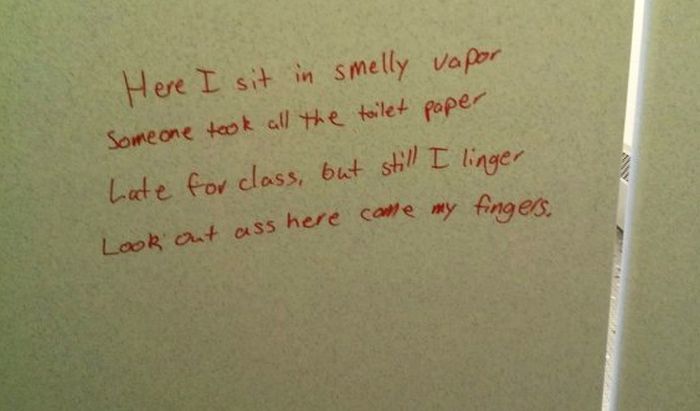 Here I sit in smelly vapor
Someone took all the toilet paper
Late for class, but still I linger
Look out ass here come my fingers.